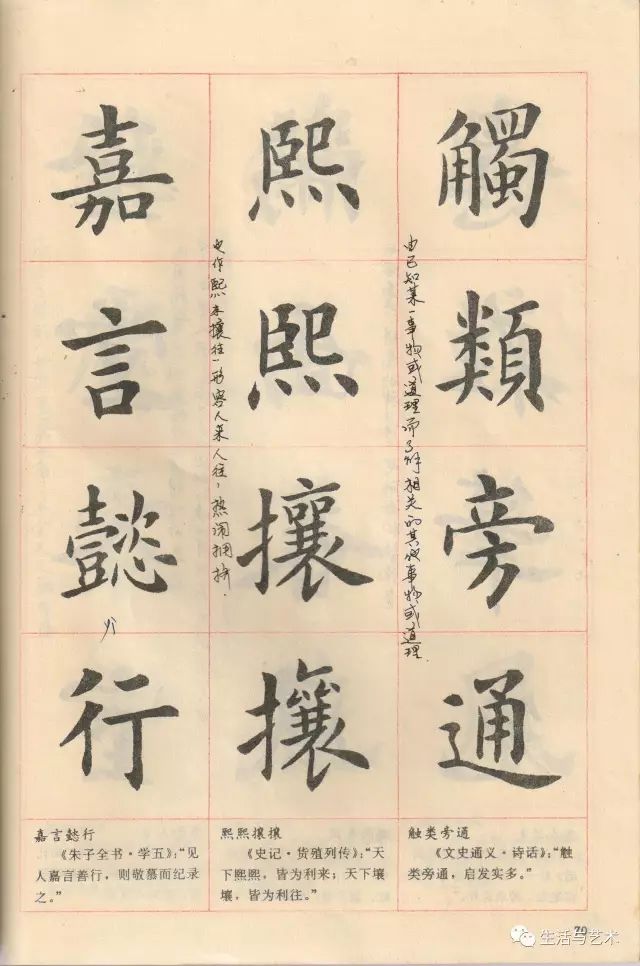 觸類旁通
由已知某一事物或道理而了解相关的其他事物或道理.
熙熙攘攘
也作熙来攘往,形容人来人往,热闹拥挤.
嘉言懿行
yì
触类旁通
《文史通义·诗话》:“触
类旁通,启发实多。”
熙熙攘攘
《史记·货殖列传》:“天
下熙熙,皆为利来;天下壤
壤,皆为利往。”
嘉言懿行
《朱子全书·学五》:“见
人嘉言善行,则敬慕而纪录
之。”
生活与艺术